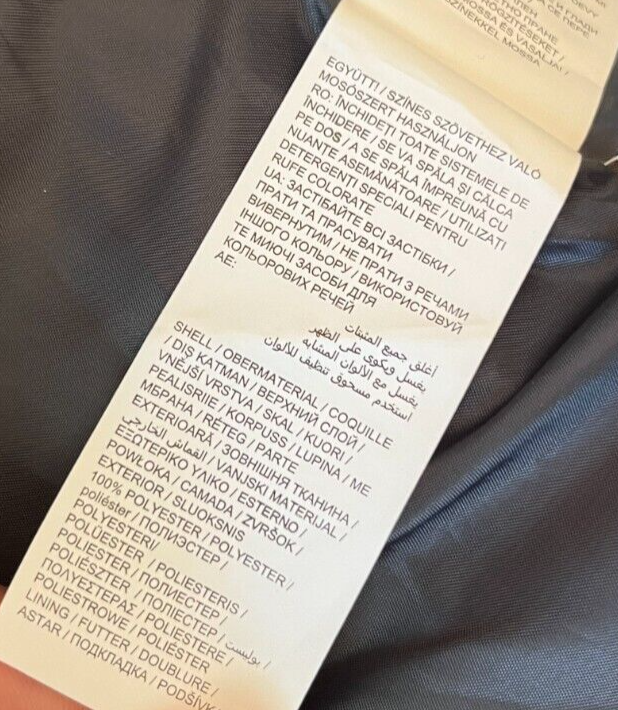 TНО ПРАНЕ
RÖGZÍTÉSEKET /
MOSSA ÉS VASALJA! /
SZÍNEKKEL MOSSA
EGYÜTT! / SZÍNES SZÖVETHEZ VALÓ
MOSÓSZERT HASZNÁLJON
RO: ÎNCHIDEȚI TOATE SISTEMELE DE
ÎNCHIDERE / SE VA SPĂLA ȘI CĂLCA
PE DOS / A SE SPĂLA ÎMPREUNĂ CU
NUANȚE ASEMĂNĂTOARE / UTILIZAȚI
DETERGENȚI SPECIALI PENTRU
RUFE COLORATE
UA: ЗАСТІБАЙТЕ ВСІ ЗАСТІБКИ /
ПРАТИ ТА ПРАСУВАТИ
ВИВЕРНУТИМ / НЕ ПРАТИ З РЕЧАМИ
ІНШОГО КОЛЬОРУ / ВИКОРИСТОВУЙ
ТЕ МИЮЧІ ЗАСОБИ ДЛЯ
КОЛЬОРОВИХ РЕЧЕЙ
AE:
أغلق جميع المثبتات
يغسل ويكوى على الظهر
يغسل مع الألوان المشابه
استخدم مسحوق تنظيف للألوان
SHELL / OBERMATERIAL / COQUILLE
/ DIŞ KATMAN / ВЕРХНИЙ СЛОЙ /
VNĚJŠÍ VRSTVA / SKAL / KUORI /
PEALISRIIE / KORPUSS / LUPINA / МЕ
МБРАНА / RÉTEG / PARTE
EXTERIOARĂ / ЗОВНІШНЯ ТКАНИНА /
القماش الخارجي / VANJSKI MATERIJAL /
ΕΞΩΤΕΡΙΚΟ ΥΛΙΚΟ / ESTERNO /
POWŁOKA / CAMADA / ZVRŠOK /
EXTERIOR / SLUOKSNIS
100% POLYESTER / POLYESTER /
poliéster / ПОЛИЭСТЕР /
POLYESTERI /
POLÜESTER / POLIESTERIS /
POLIESTER / ПОЛИЕСТЕР /
POLIÉSZTER / ПОЛІЕСТЕР /
ΠΟΛΥΕΣΤΕΡΑΣ / POLIESTERE / بوليستر /
POLIESTROWE / POLIÉSTER
LINING / FUTTER / DOUBLURE /
ASTAR / ПОДКЛАДКА / PODŠÍVK